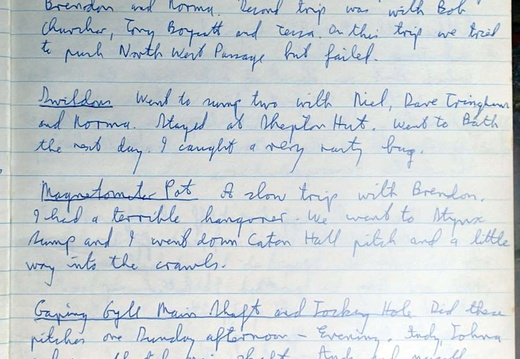 Brendon and Norma. Second trip was with Bob
Churcher, Tony Boycott and Tessa. On this trip we tried
to push North West Passage but failed.
Swildons Went to sump two with Niel, Dave
and Norma. Stayed at Shepton Hut. Went to Bath
the next day. I caught a very nasty bug.
Magnetometer Pot A slow trip with Brendon.
I had a terrible hangover. We went to Stynx
Sump and I went down Caton Hall pitch and a little
way into the crawls.
Gaping Gyll Main Shaft and Jockey Hole Did these
pitches one Sunday afternoon – Evening. Andy,